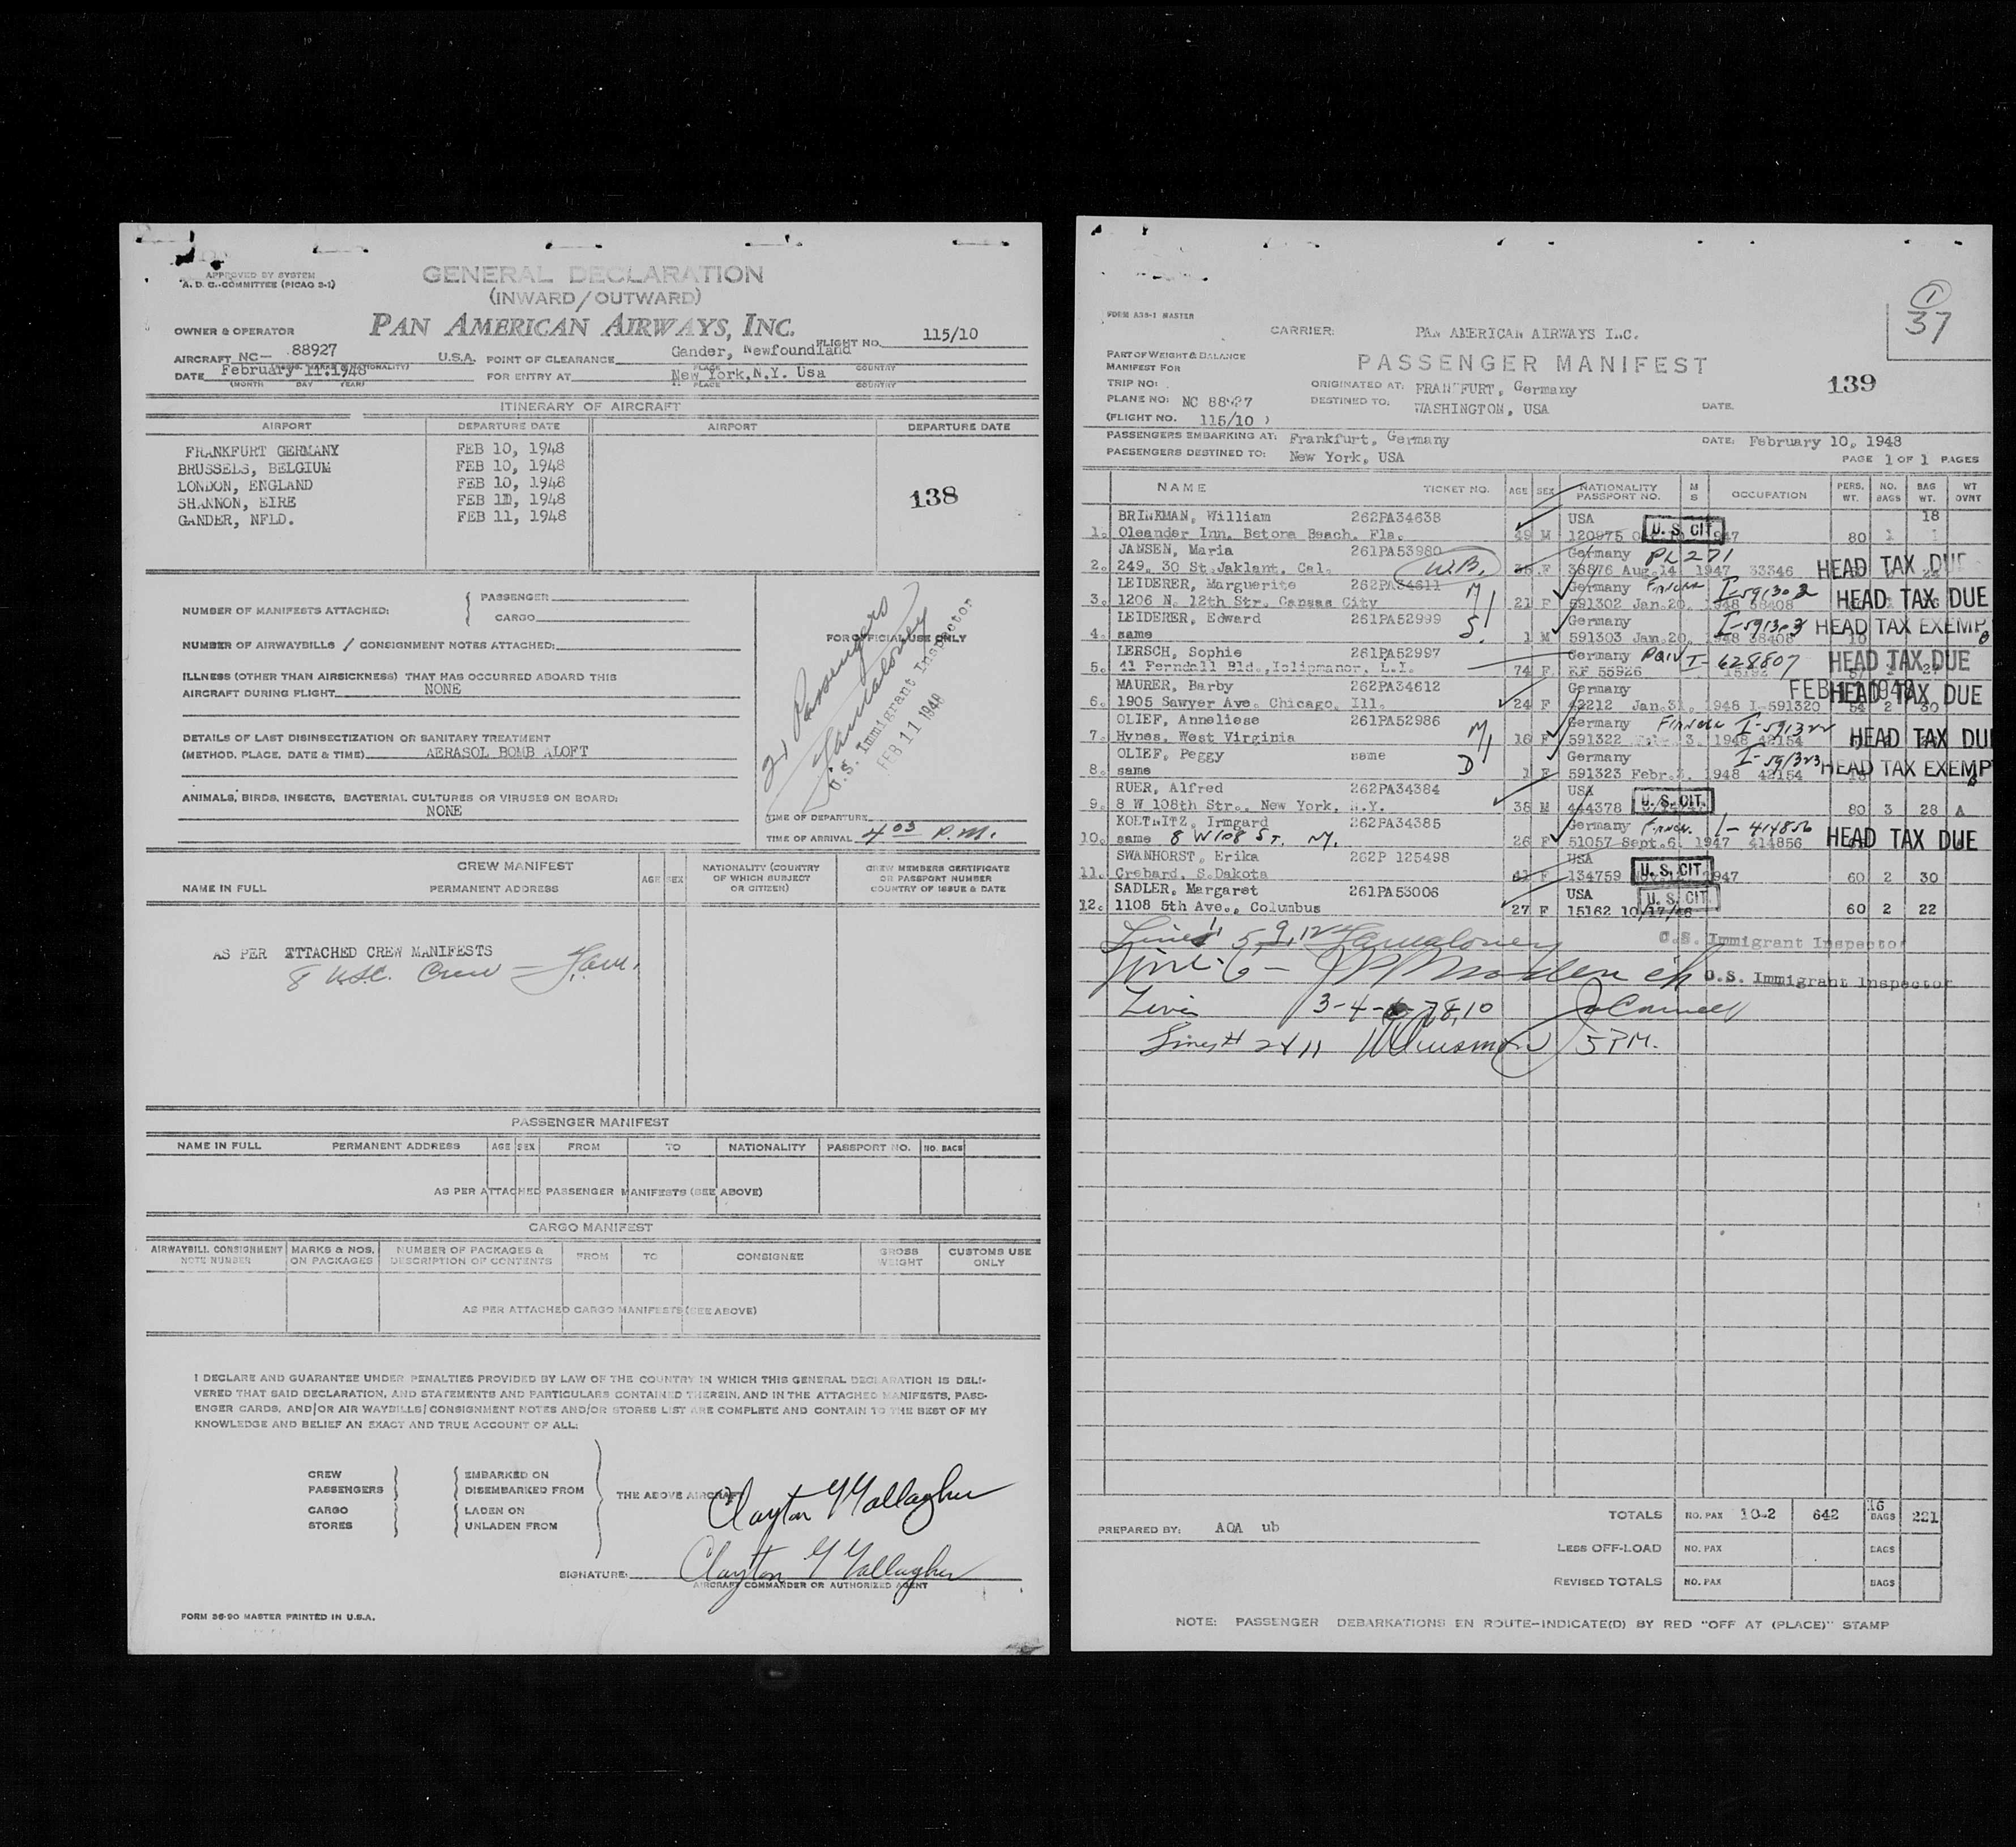 APPROVED BY SYSTEM
A. D. C. COMMITTEE (PICAO S-1)
GENERAL DECLARATION
(INWARD/OUTWARD)
OWNER & OPERATOR PAN AMERICAN AIRWAYS, INC. FLIGHT NO. 115/10
AIRCRAFT NC- 88927 U.S.A. POINT OF CLEARANCE Gander, Newfoundland
DATE February 11.1948 FOR ENTRY AT New York,N.Y. Usa
(MONTH DAY YEAR) PLACE COUNTRY
ITINERARY OF AIRCRAFT
AIRPORT DEPARTURE DATE AIRPORT DEPARTURE DATE
FRANKFURT GERMANY FEB 10, 1948
BRUSSELS, BELGIUM FEB 10, 1948
LONDON, ENGLAND FEB 10, 1948
SHANNON, EIRE FEB 11, 1948
GANDER, NFLD. FEB 11, 1948
138
NUMBER OF MANIFESTS ATTACHED: PASSENGER
CARGO
NUMBER OF AIRWAYBILLS / CONSIGNMENT NOTES ATTACHED:
ILLNESS (OTHER THAN AIRSICKNESS) THAT HAS OCCURRED ABOARD THIS
AIRCRAFT DURING FLIGHT NONE
DETAILS OF LAST DISINSECTIZATION OR SANITARY TREATMENT
(METHOD, PLACE, DATE & TIME) AERASOL BOMB ALOFT
ANIMALS, BIRDS, INSECTS, BACTERIAL CULTURES OR VIRUSES ON BOARD:
NONE
FOR OFFICIAL USE ONLY
21 Passengers
U.S. Immigrant Inspector
FEB 11 1948
TIME OF DEPARTURE
TIME OF ARRIVAL 4 03 P.M.
CREW MANIFEST
NAME IN FULL PERMANENT ADDRESS AGE SEX NATIONALITY (COUNTRY OF WHICH SUBJECT OR CITIZEN) CREW MEMBERS CERTIFICATE OR PASSPORT NUMBER COUNTRY OF ISSUE & DATE
AS PER ATTACHED CREW MANIFESTS
8 U.S.C. Crew
PASSENGER MANIFEST
NAME IN FULL PERMANENT ADDRESS AGE SEX FROM TO NATIONALITY PASSPORT NO. NO. BAGS
AS PER ATTACHED PASSENGER MANIFESTS (SEE ABOVE)
CARGO MANIFEST
AIRWAYBILL CONSIGNMENT NOTE NUMBER MARKS & NOS. ON PACKAGES NUMBER OF PACKAGES & DESCRIPTION OF CONTENTS FROM TO CONSIGNEE GROSS WEIGHT CUSTOMS USE ONLY
AS PER ATTACHED CARGO MANIFESTS (SEE ABOVE)
I DECLARE AND GUARANTEE UNDER PENALTIES PROVIDED BY LAW OF THE COUNTRY IN WHICH THIS GENERAL DECLARATION IS DELI-
VERED THAT SAID DECLARATION, AND STATEMENTS AND PARTICULARS CONTAINED THEREIN, AND IN THE ATTACHED MANIFESTS, PASS-
ENGER CARDS, AND/OR AIR WAYBILLS/CONSIGNMENT NOTES AND/OR STORES LIST ARE COMPLETE AND CONTAIN TO THE BEST OF MY
KNOWLEDGE AND BELIEF AN EXACT AND TRUE ACCOUNT OF ALL:
CREW EMBARKED ON
PASSENGERS DISEMBARKED FROM THE ABOVE AIRCRAFT
CARGO LADEN ON
STORES UNLADEN FROM
Clayton Y Gallagher
SIGNATURE: Clayton Y Gallagher
AIRCRAFT COMMANDER OR AUTHORIZED AGENT
FORM 36-90 MASTER PRINTED IN U.S.A.
1
37
FORM A36-1 MASTER
CARRIER: PAN AMERICAN AIRWAYS INC.
PART OF WEIGHT & BALANCE
MANIFEST FOR PASSENGER MANIFEST
139
TRIP NO: ORIGINATED AT: FRANKFURT, Germany
PLANE NO: NC 88927 DESTINED TO: WASHINGTON, USA DATE
(FLIGHT NO. 115/10 )
PASSENGERS EMBARKING AT: Frankfurt, Germany DATE: February 10, 1948
PASSENGERS DESTINED TO: New York, USA PAGE 1 OF 1 PAGES
NAME TICKET NO. AGE SEX NATIONALITY PASSPORT NO. M S OCCUPATION PERS. WT. NO. BAGS BAG WT. WT OVNT
BRINKMAN, William 262PA34638 USA 18
1. Oleander Inn. Betora Beach. Fla. 49 M 120975 U. S. CIT. 1947 80 1
JANSEN, Maria 261PA53980 Germany PL 271
2. 249. 30 St.Jaklant. Cal. W.B. F 36876 Aug.14 1947 33346 HEAD TAX DUE
LEIDERER, Marguerite 262PA34611 Germany I-591302
3. 1206 N. 12th Str. Cansas City 21 F 591302 Jan.20. 1948 38408 HEAD TAX DUE
LEIDERER, Edward 261PA52999 Germany I-591303
4. same 1 M 591303 Jan.20. 1948 38408 HEAD TAX EXEMP
LERSCH, Sophie 261PA52997 Germany I-628807
5. 41 Ferndall Bld.,Islipmanor. L.I. 74 F RF 55926 HEAD TAX DUE
MAURER, Barby 262PA34612 Germany FEB 1948
6. 1905 Sawyer Ave. Chicago, Ill. 24 F 42212 Jan.31. 1948 I-591320 54 2 30 HEAD TAX DUE
OLIEF, Anneliese 261PA52986 Germany I-591322
7. Hynes, West Virginia 16 F 591322 3. 1948 42154 HEAD TAX DUE
OLIEF, Peggy same Germany I-591323
8. same 1 F 591323 Febr.3. 1948 42154 HEAD TAX EXEMP
RUER, Alfred 262PA34384 USA
9. 8 W 108th Str.. New York, N.Y. 38 M 444378 U. S. CIT. 80 3 28 A
KOETWITZ, Irmgard 262PA34385 Germany I-414856
10. same 8 W 108 ST. NY. 26 F 51057 Sept.6. 1947 414856 HEAD TAX DUE
SWANHORST, Erika 262P 125498 USA
11. Crebard. S.Dakota F 134759 U. S. CIT. 1947 60 2 30
SADLER, Margaret 261PA53006 USA U. S. CIT.
12. 1108 5th Ave., Columbus 27 F 15162 10/17/46 60 2 22
Lines 1, 5, 9, 12 U.S. Immigrant Inspector
Line 6 - U.S. Immigrant Inspector
Lines 3-4- 7 8, 10
Lines # 2 & 11 5 PM.
TOTALS NO. PAX 10-2 642 16 BAGS 221
PREPARED BY: AOA ub
LESS OFF-LOAD NO. PAX BAGS
REVISED TOTALS NO. PAX BAGS
NOTE: PASSENGER DEBARKATIONS EN ROUTE-INDICATE(D) BY RED "OFF AT (PLACE)" STAMP